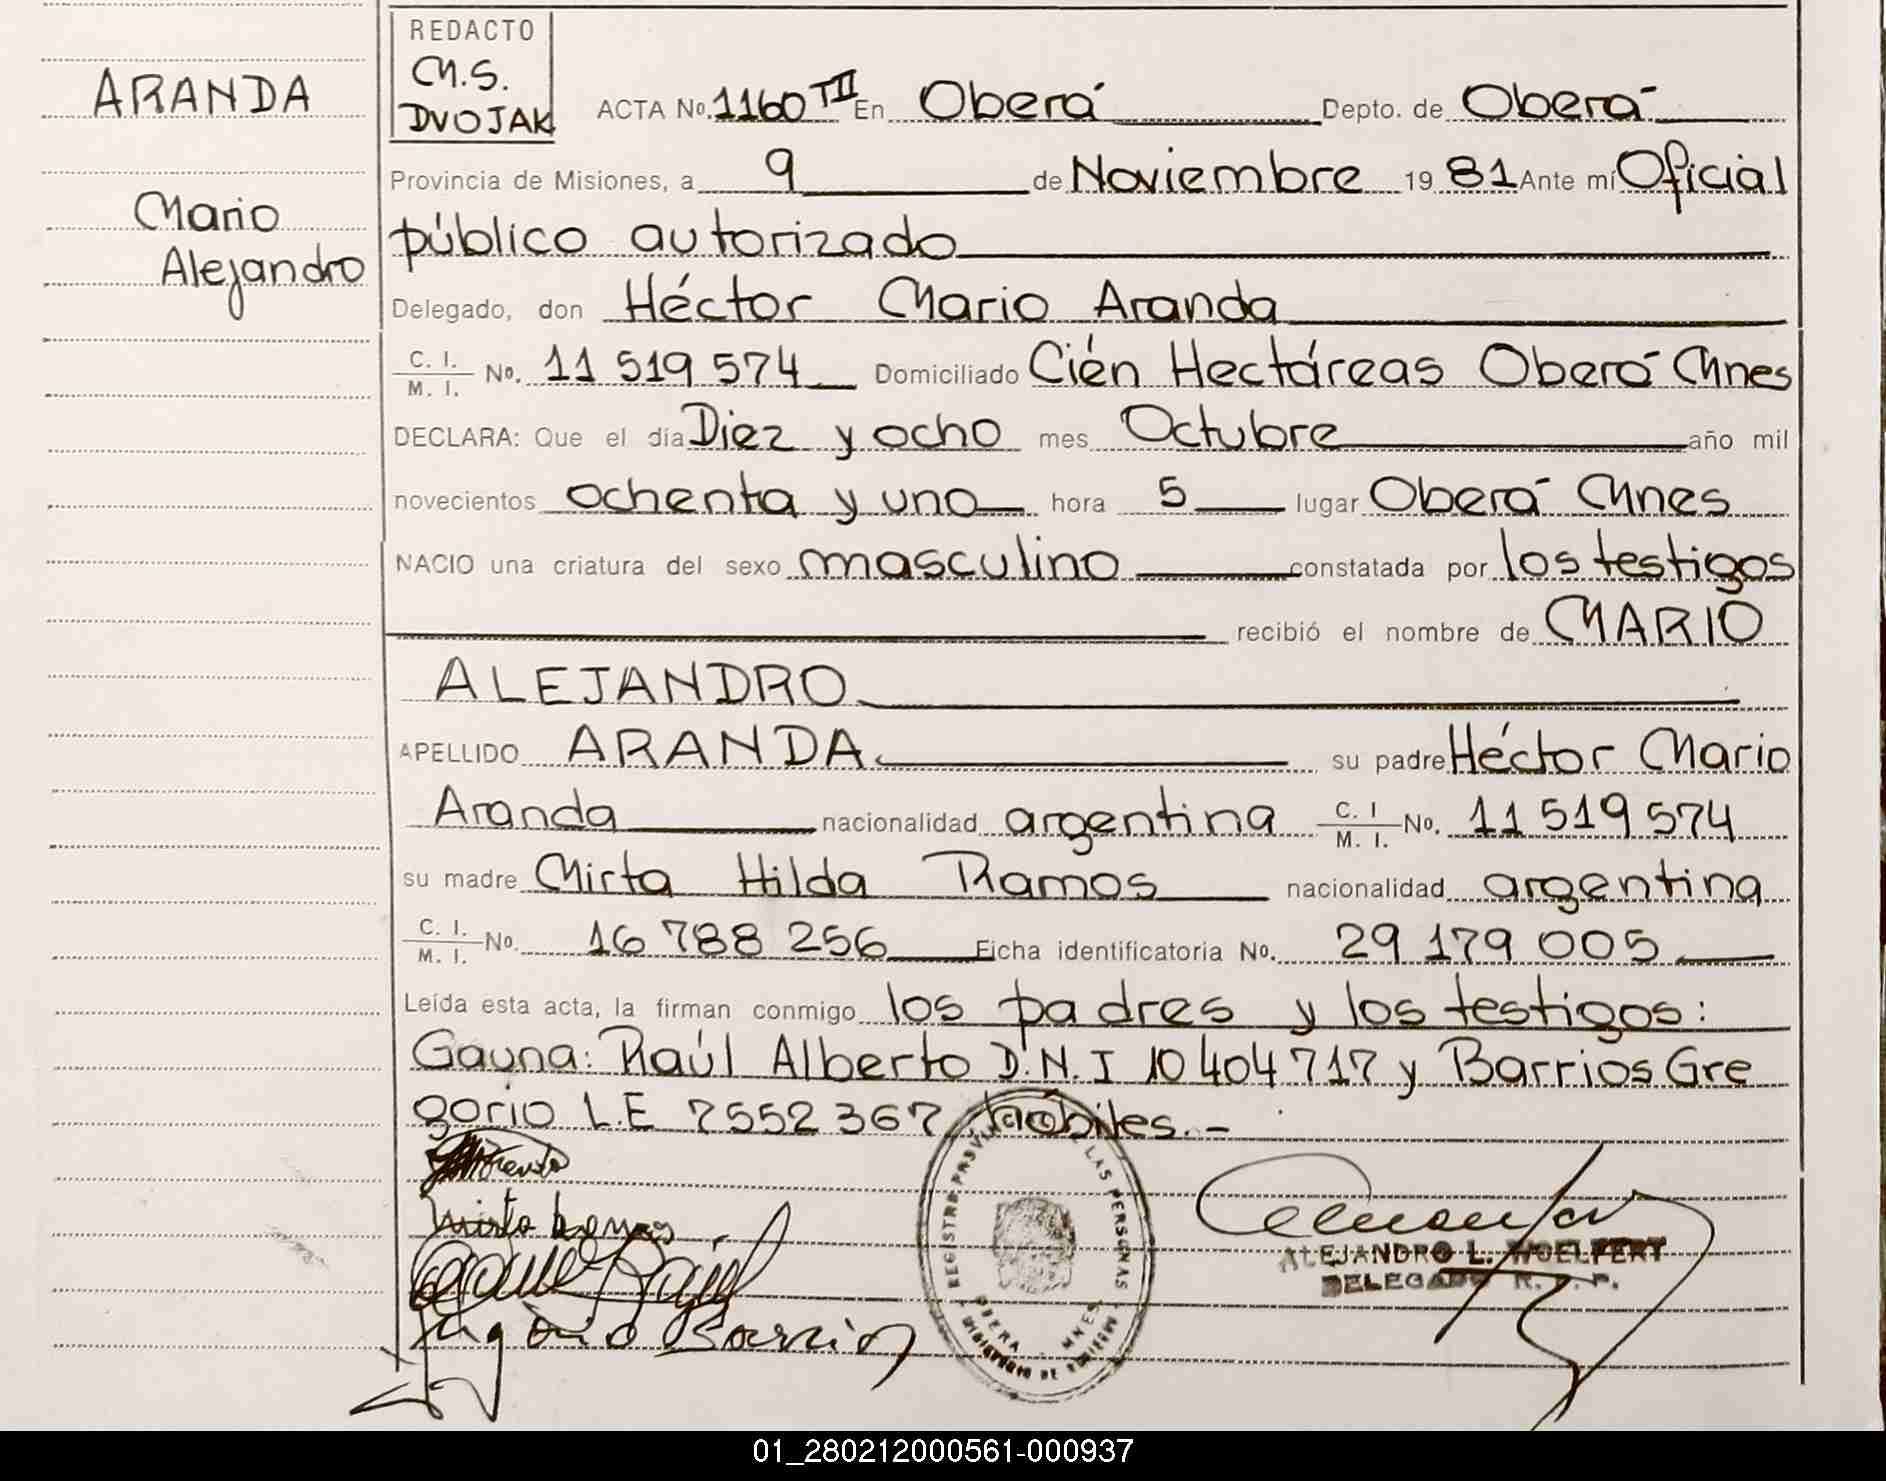 ARANDA
Mario
Alejandro
REDACTO
M.S.
DVOJAK
ACTA No. 1160 TII En Oberá Depto. de Oberá
Provincia de Misiones, a 9 de Noviembre 19 81 Ante mí Oficial
público autorizado
Delegado, don Héctor Mario Aranda
C. I. / M. I. No. 11 519 574 Domiciliado Cién Hectáreas Oberá Mnes
DECLARA: Que el día Diez y ocho mes Octubre año mil
novecientos ochenta y uno hora 5 lugar Oberá Mnes
NACIO una criatura del sexo masculino constatada por los testigos
recibió el nombre de MARIO
ALEJANDRO
APELLIDO ARANDA su padre Héctor Mario
Aranda nacionalidad argentina C. I / M. I. No. 11 519 574
su madre Mirta Hilda Ramos nacionalidad argentina
C. I. / M. I. No. 16 788 256 Ficha identificatoria No. 29 179 005
Leída esta acta, la firman conmigo los padres y los testigos:
Gauna: Raúl Alberto D.N.I 10 404 717 y Barrios Gre
gorio L.E 7552 367 hábiles.-
REGISTRO PROV LAS PERSONAS
OBERA - MNES
ALEJANDRO L. WOELFERT
DELEGADO R. P.
01_280212000561-000937